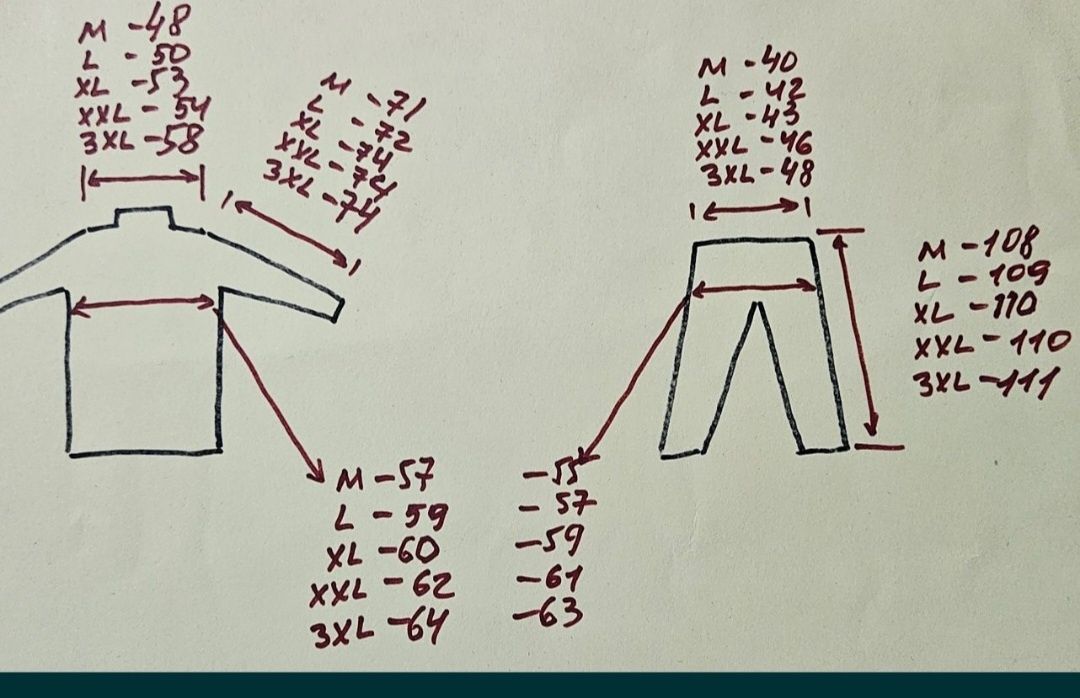 M - 48
L - 50
XL - 53
XXL - 54
3XL - 58
M - 71
L - 72
XL - 74
XXL - 74
3XL - 74
M - 40
L - 42
XL - 43
XXL - 46
3XL - 48
M - 108
L - 109
XL - 110
XXL - 110
3XL - 111
M - 57
L - 59
XL - 60
XXL - 62
3XL - 64
- 55
- 57
- 59
- 61
- 63